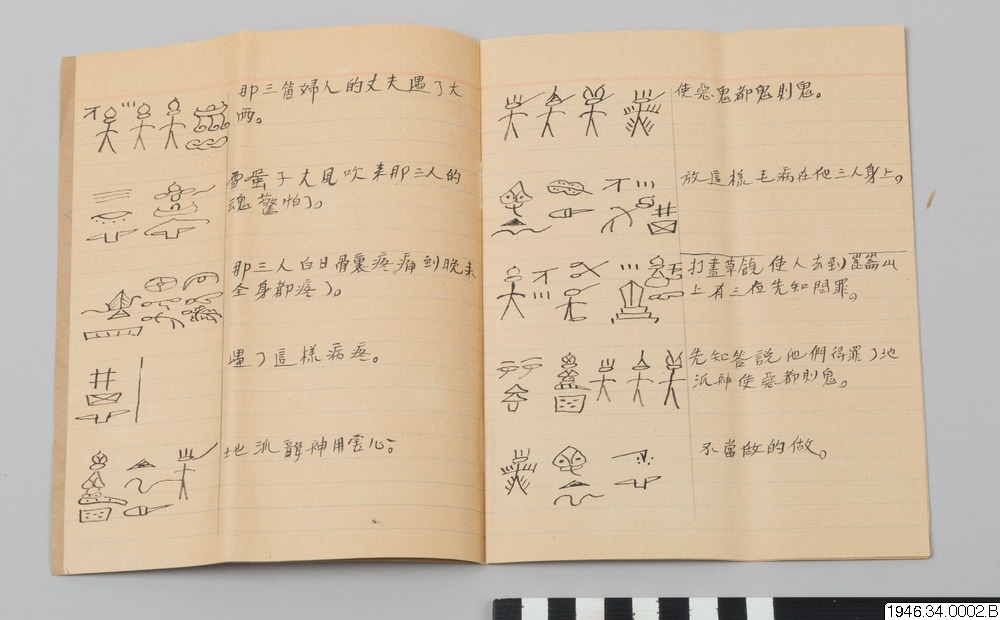 那三箇婦人的丈夫遇了大
西。
雪蛋子大風吹来那三人的
魂驚怕了。
那三人白日骨裏疼痛到晚来
全身都疼了。
遇了這樣病疼。
地派龍神用害心。
使惡鬼都鬼則鬼。
放這樣毛病在他三人身上。
打畫草饒使人去到崑崙山
上有三位先知問罪。
先知答說他們得罪了地
派神使惡都則鬼。
不當做的做。
1946.34.0002.B